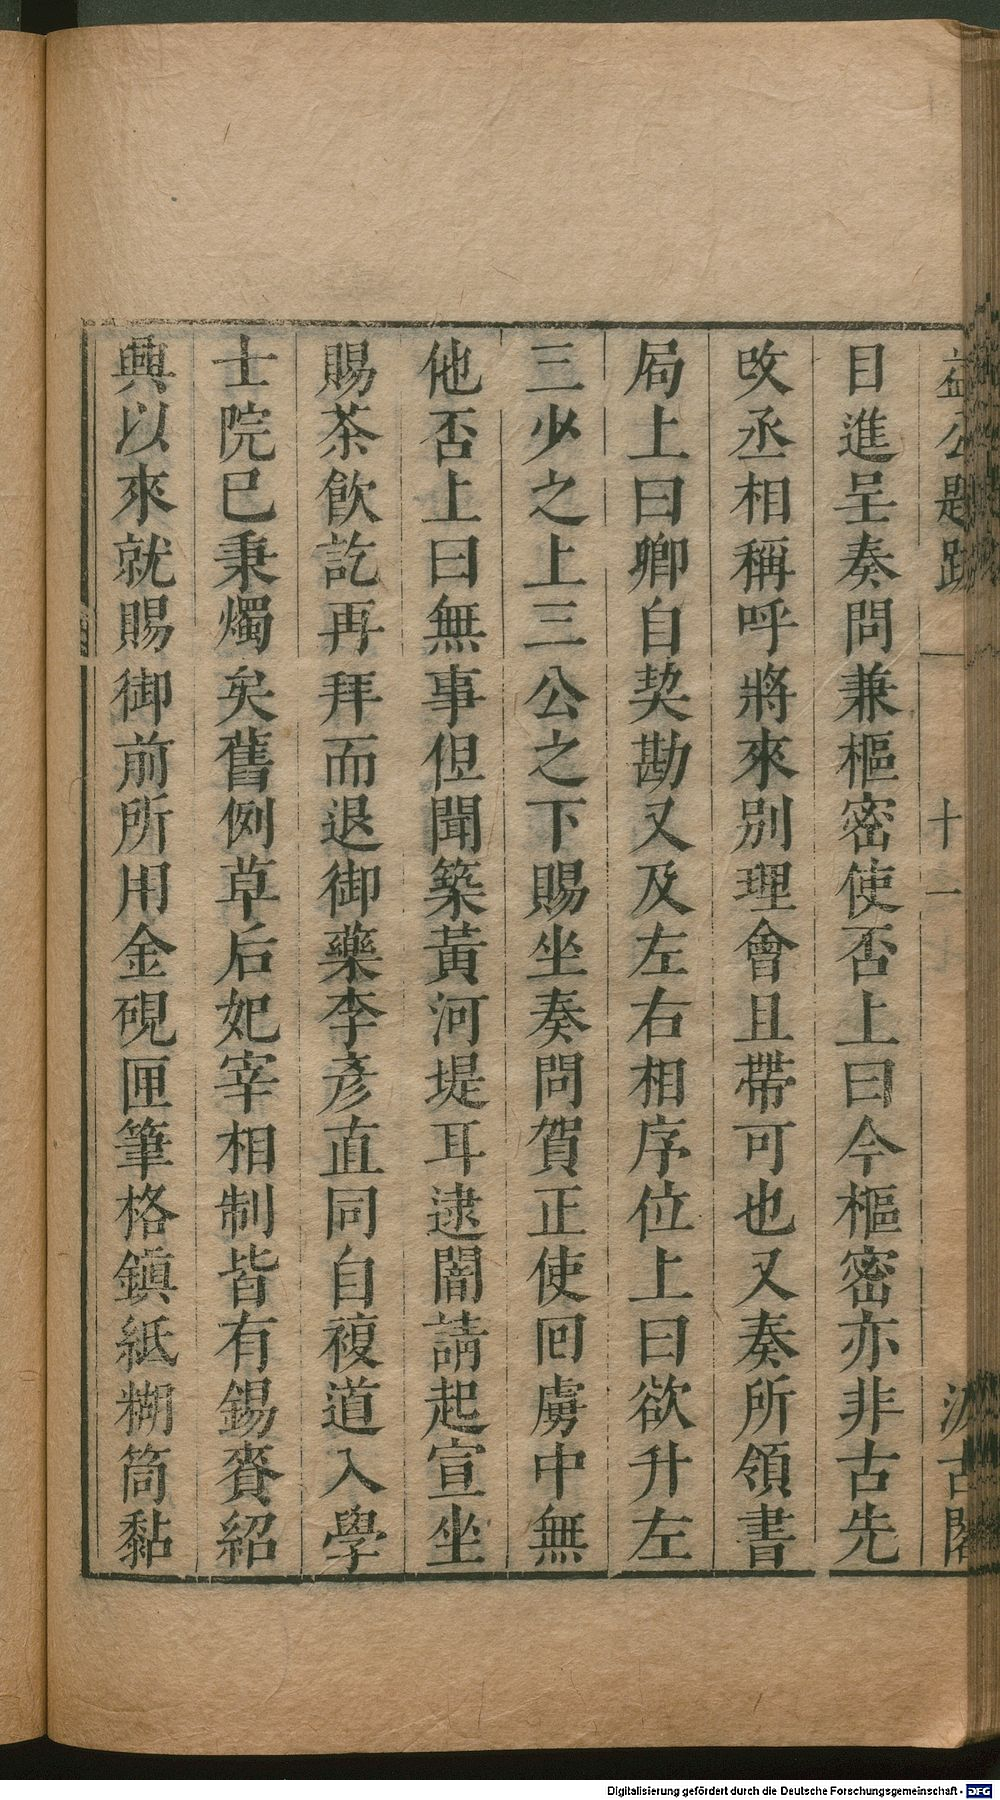 益公題跋
十一
汲古閣
目進呈奏問兼樞密使否上曰今樞密亦非古先
攺丞相稱呼將來別理會且帶可也又奏所領書
局上曰卿自契勘又及左右相序位上曰欲升左
三少之上三公之下賜坐奏問賀正使回虜中無
他否上曰無事但聞築黃河堤耳逮闇請起宣坐
賜茶飲訖再拜而退御藥李彥直同自複道入學
士院已秉燭矣舊例草后妃宰相制皆有錫賚紹
興以來就賜御前所用金硯匣筆格鎭紙糊筒黏
Digitalisierung gefördert durch die Deutsche Forschungsgemeinschaft - DFG